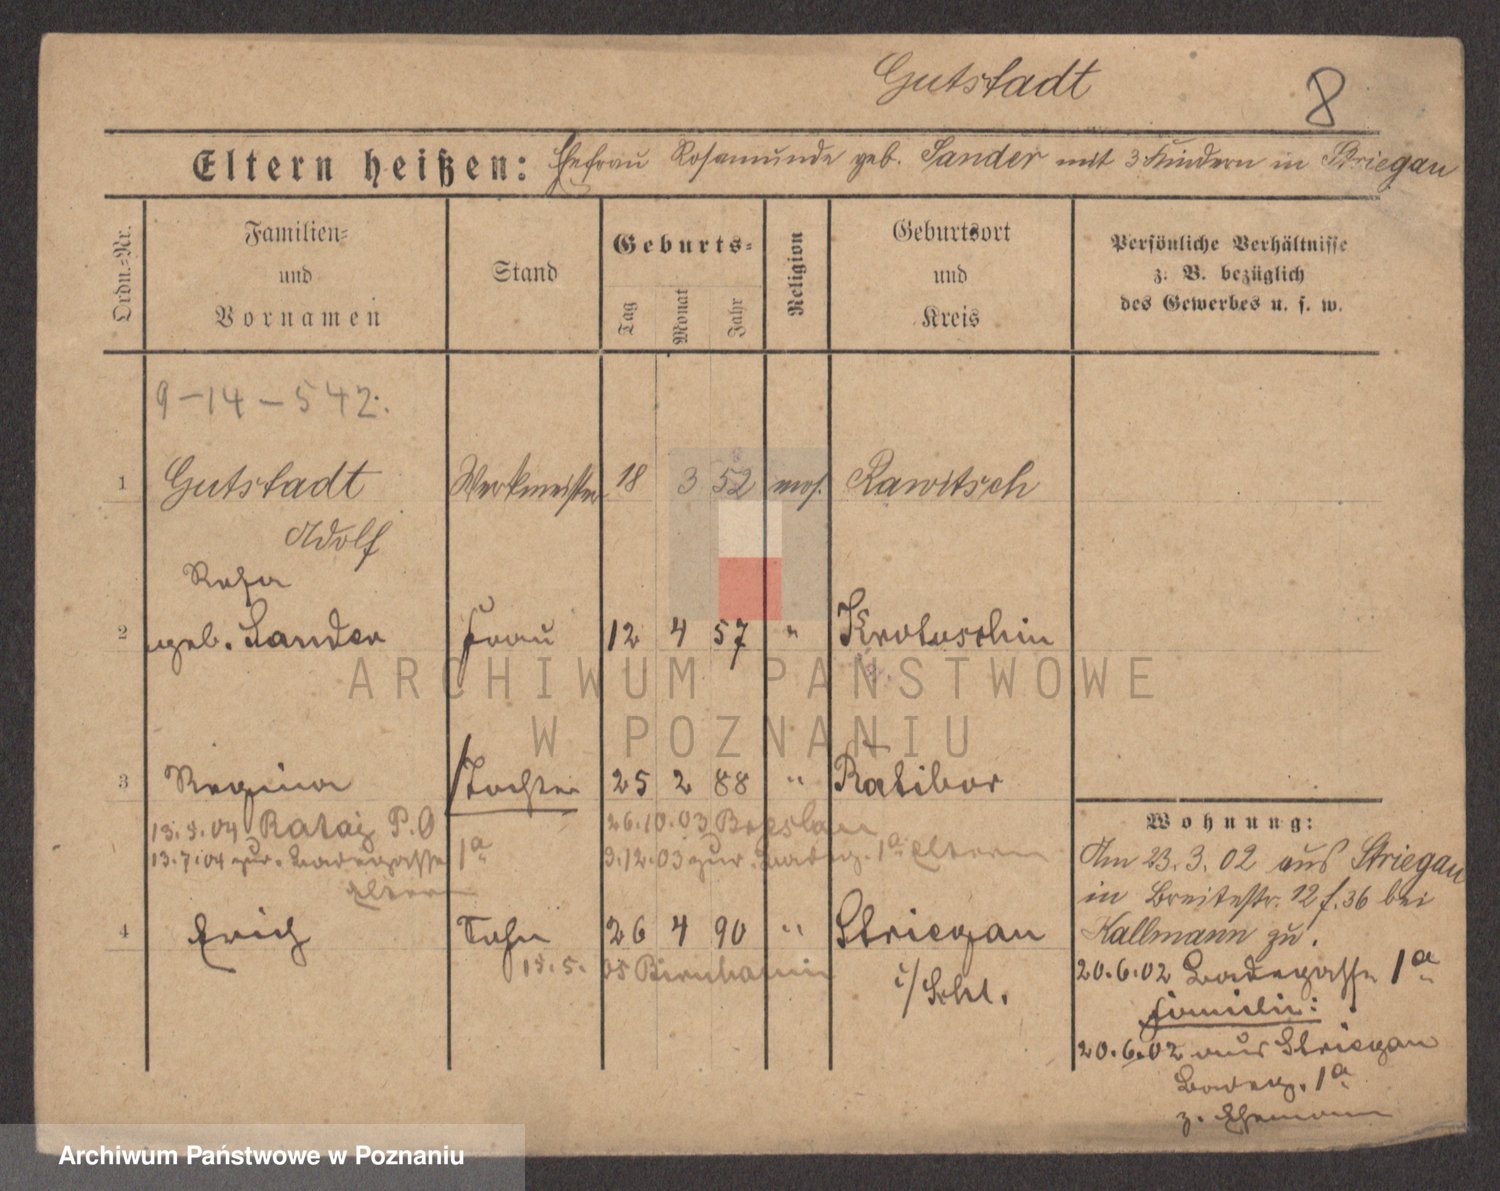 Gutstadt
8
Eltern heißen: Ehefrau Rosamunde geb. Sander mit 3 Kindern in Striegau
Ordn.-Nr.
Familien-
und
Vornamen
Stand
Geburts-
Tag
Monat
Jahr
Religion
Geburtsort
und
Kreis
Persönliche Verhältnisse
z. B. bezüglich
des Gewerbes u. s. w.
9-14-542.
1 Gutstadt Werkmeister 18 3 52 mos. Rawitsch
Adolf
Rosa
2 geb. Sander Frau 12 4 57 " Krotoschin
ARCHIWUM PAŃSTWOWE
W POZNANIU
3 Regina Tochter 25 2 88 " Ratibor
13.3.04 Rataj P.O 26.10.03 Breslau
13.7.04 zur. Badegasse 1a 9.12.03 zur. Badeg. 1a Eltern
Eltern
4 Erich Sohn 26 4 90 " Striegau
15.5.05 Birnbaum
i/Schl.
Wohnung:
Am 23.3.02 aus Striegau
in Breitestr. 12 f. 36 bei
Kallmann zu.
20.6.02 Badegasse 1a
Familie:
20.6.02 aus Striegau
Badeg. 1a
z. Ehemann
Archiwum Państwowe w Poznaniu